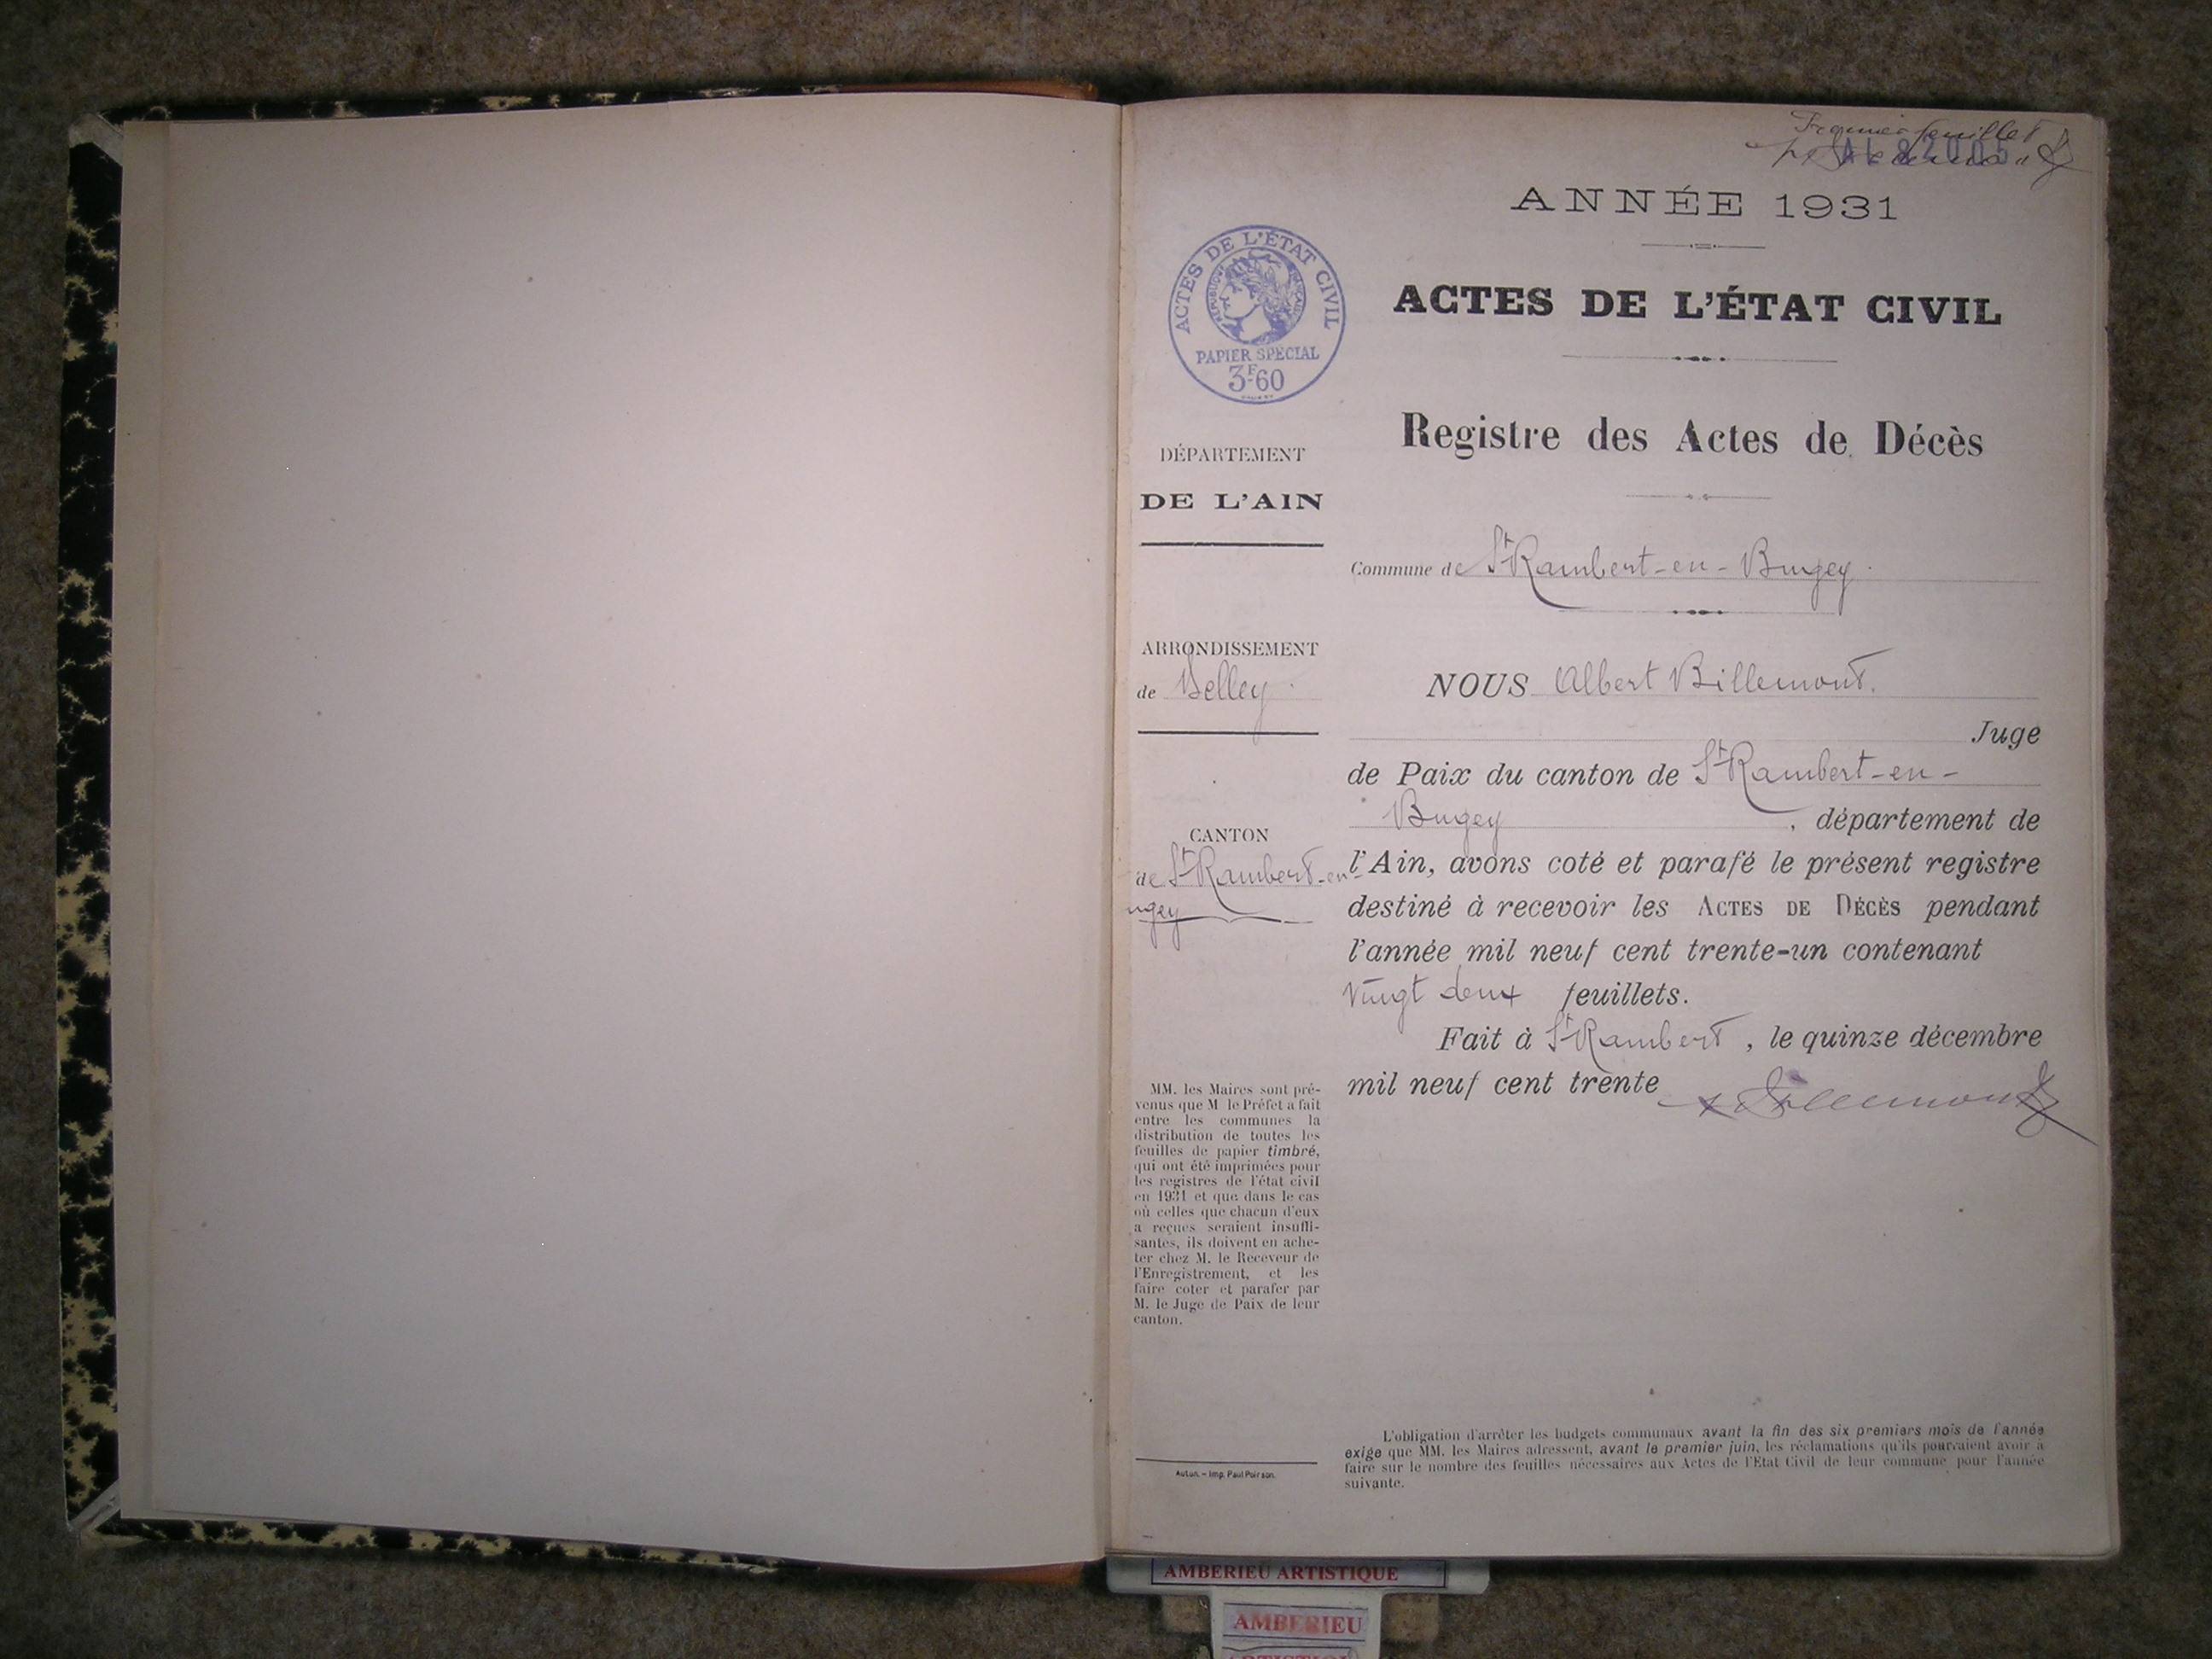 Premier feuillet
AL 82005
ANNÉE 1931
ACTES DE L'ÉTAT CIVIL
RÉPUBLIQUE FRANÇAISE
PAPIER SPÉCIAL
3F60
ACTES DE L'ÉTAT CIVIL
Registre des Actes de Décès
DÉPARTEMENT
DE L'AIN
Commune de St Rambert-en-Bugey.
ARRONDISSEMENT
de Belley.
CANTON
de St Rambert-en-
ugey
MM. les Maires sont pré-
venus que M le Préfet a fait
entre les communes la
distribution de toutes les
feuilles de papier timbré,
qui ont été imprimées pour
les registres de l'état civil
en 1931 et que dans le cas
où celles que chacun d'eux
a reçues seraient insuffi-
santes, ils doivent en ache-
ter chez M. le Receveur de
l'Enregistrement, et les
faire coter et parafer par
M. le Juge de Paix de leur
canton.
Auton. – Imp. Paul Poirson.
NOUS Albert Billemont.
Juge
de Paix du canton de St Rambert-en-
Bugey, département de
l'Ain, avons coté et parafé le présent registre
destiné à recevoir les ACTES DE DÉCÈS pendant
l'année mil neuf cent trente-un contenant
Vingt deux feuillets.
Fait à St Rambert, le quinze décembre
mil neuf cent trente
Billemont
L'obligation d'arrêter les budgets communaux avant la fin des six premiers mois de l'année
exige que MM. les Maires adressent, avant le premier juin, les réclamations qu'ils pourraient avoir à
faire sur le nombre des feuilles nécessaires aux Actes de l'Etat Civil de leur commune pour l'année
suivante.
AMBERIEU ARTISTIQUE
AMBERIEU
ARTISTIQU